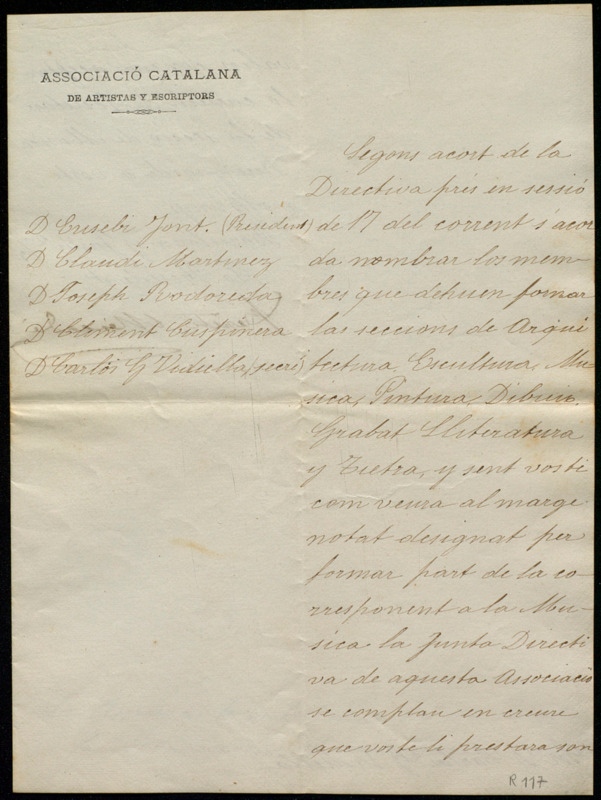 ASSOCIACIÓ CATALANA
DE ARTISTAS Y ESCRIPTORS
D Eusebi Font. (President)
D Claudi Martinez
D Joseph Rodoreda
D Climent Cuspinera
D Carlos G Vidiella, (secre)
Segons acort de la
Directiva prés en sessió
de 17 del corrent s'acor
da nombrar los mem-
bres que dehuen formar
las seccions de Arqui
tectura, Escultura, Mu-
sica, Pintura, Dibuix,
Grabat Lliteratura
y Teatra, y sent vosti
com veura al marge
notat designat per
formar part de la co-
rresponent a la Mu-
sica la Junta Directi
va de aquesta Associació
se complau en creure
que voste li prestara son
R 117